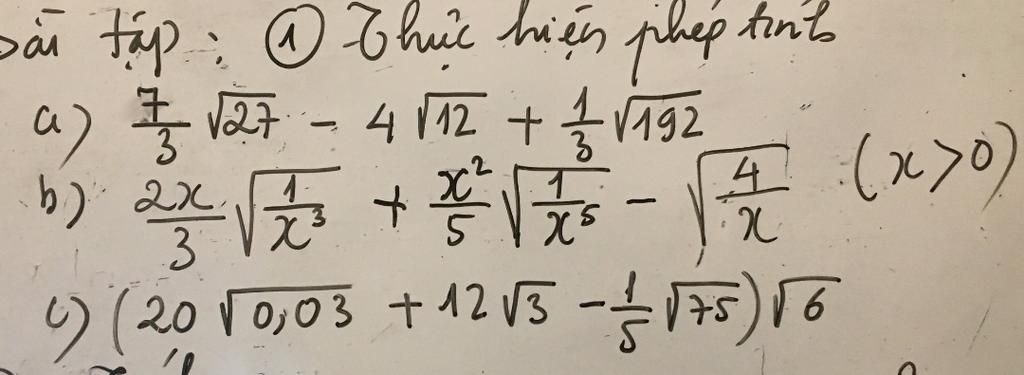 Bài tập: ① Thực hiện phép tính
a) 7/3 √27 - 4√12 + 1/3 √192
b) 2x/3 √(1/x³) + x²/5 √(1/x⁵) - √(4/x) (x>0)
c) (20√0,03 + 12√3 - 1/5 √75)√6